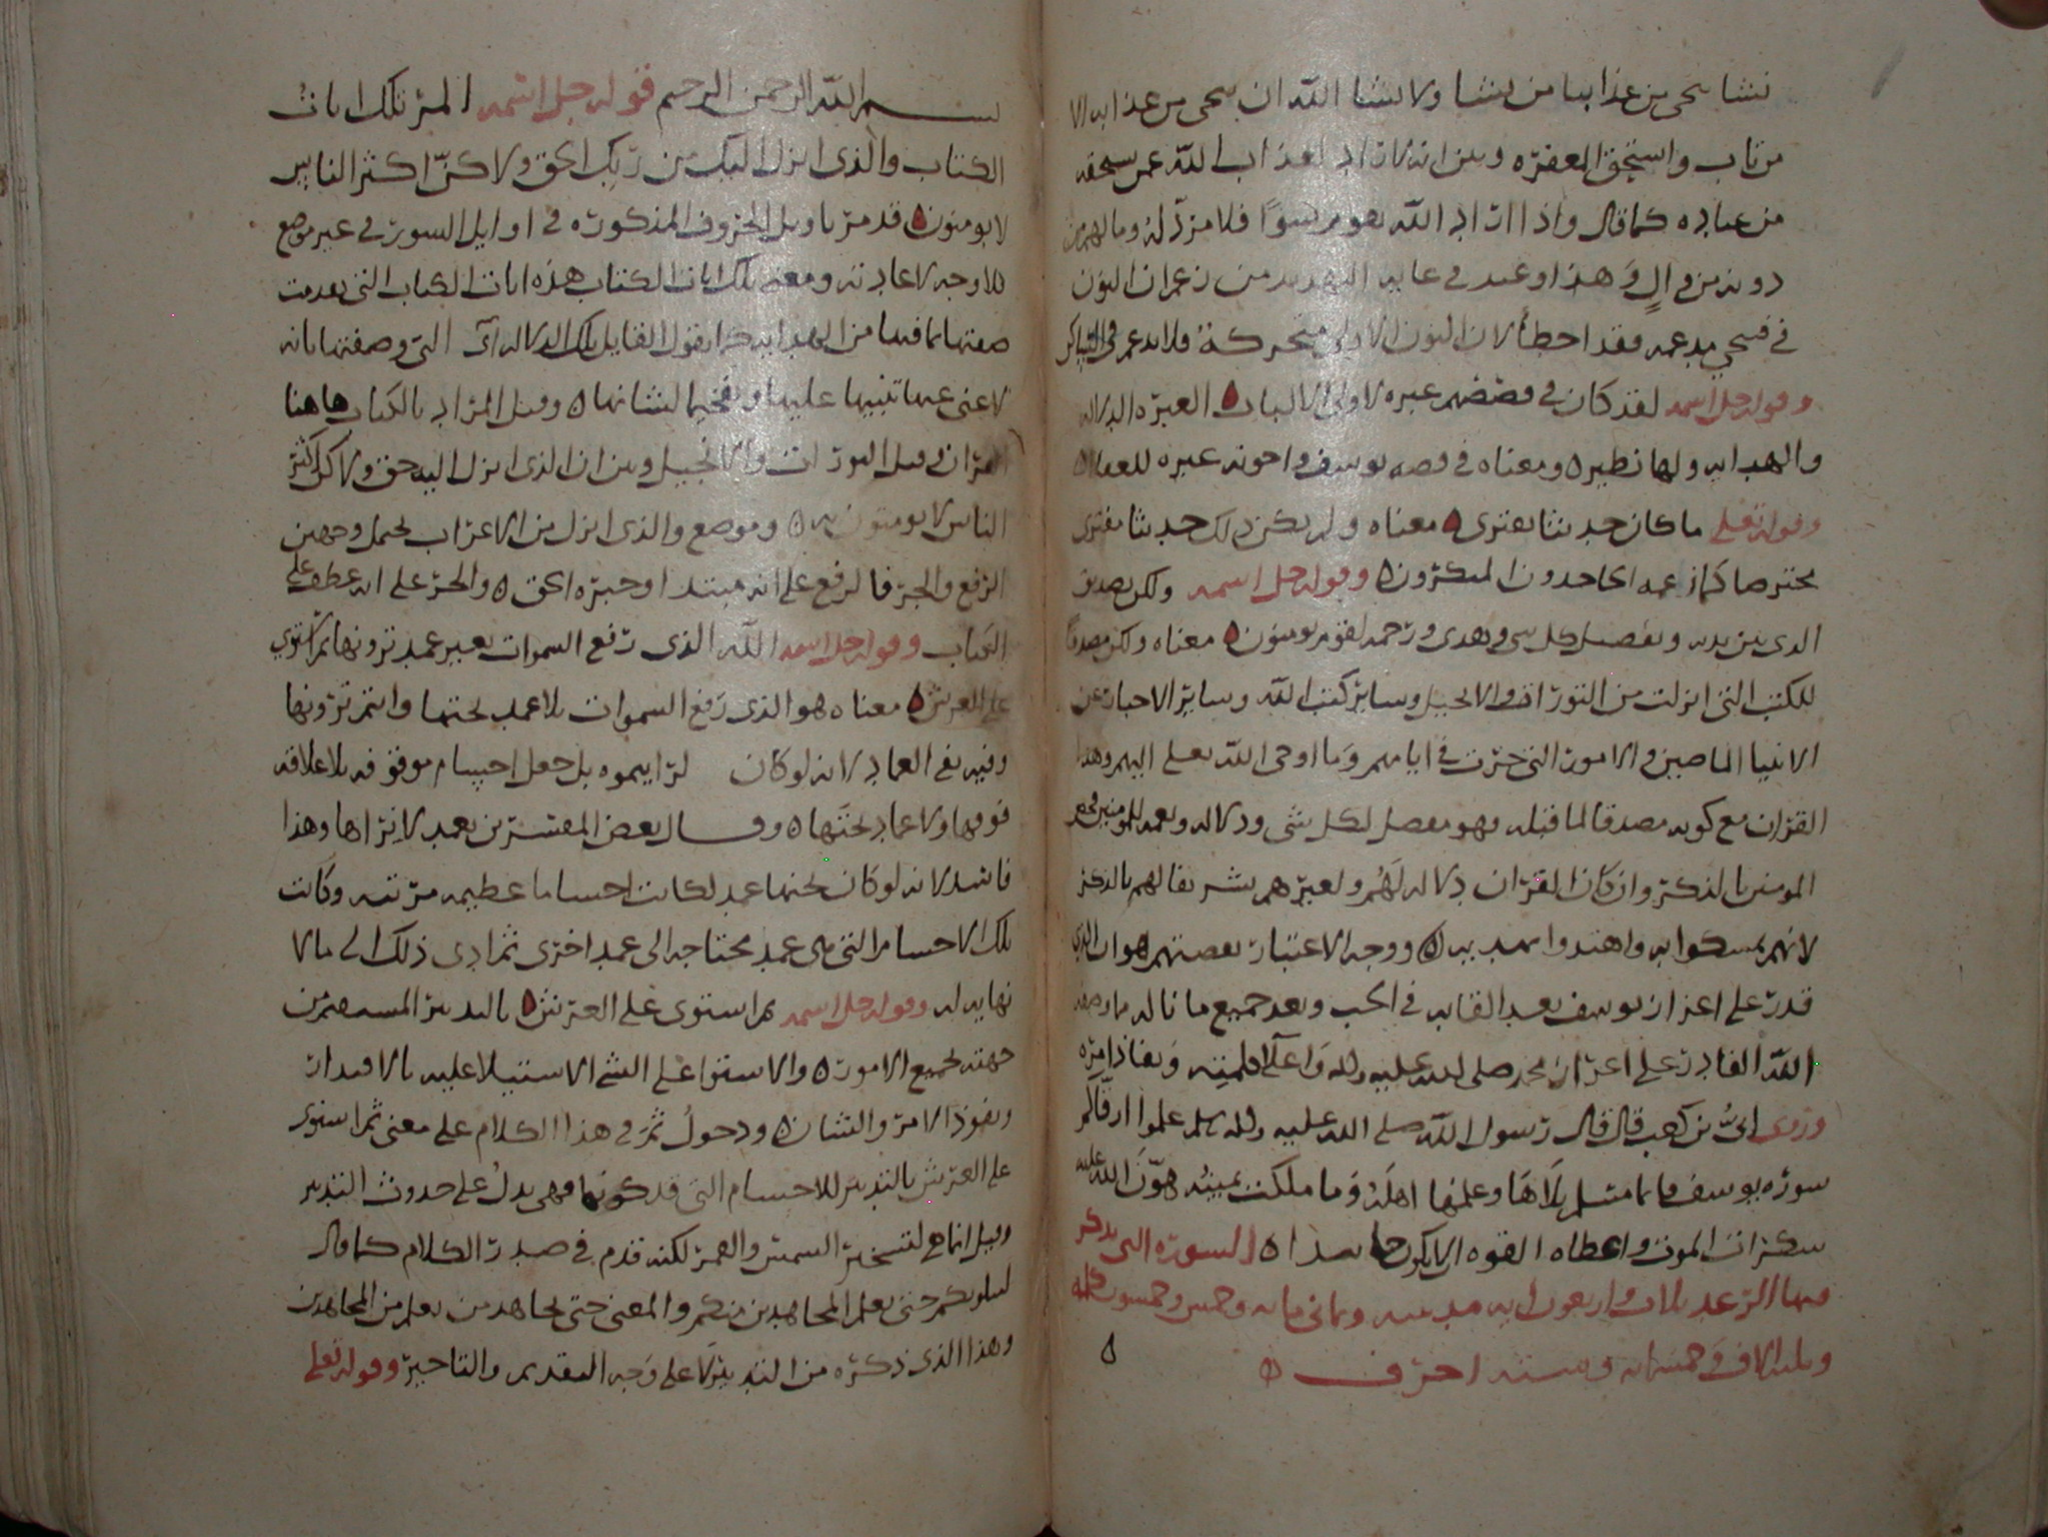 نشا ننجي من عذابنا من نشا ولا نشا الله ان ينجي من عذابه الا
من تاب واستحق المغفره وبين انه لا راد لعذاب الله عمن يستحقه
من عباده كما قال واذا اراد الله بقوم سوءًا فلا مرد له وما لهم من
دونه من والٍ وهذا وعيد في غايه التهديد من زعم ان النون
في فنجي مدغمه فقد اخطأ لان النون الاولى متحركة فلا تدغم في الساكن
وقوله جل اسمه لقد كان في قصصهم عبره لاولى الالباب ه العبره الدلاله
والهدايه ولها نظيره ومعناه في قصه يوسف واخوته عبره للعقلا ه
وقوله تعلى ما كان حديثا يفترى ه معناه ولم يكن ذلك حديثا مفترى
مخترصا كما زعمه الجاحدون المنكرون ه وقوله جل اسمه ولكن تصديق
الذي بين يديه وتفصيل كل شي وهدى ورحمه لقوم يومنون ه معناه ولكن مصدقا
للكتب التي انزلت من التوراه والانجيل وساير كتب الله وساير الاخبار عن
الانبيا الماضين والامور التي جرت في ايامهم وما اوحى الله تعلى اليهم وهذا
القران مع كونه مصدقا لما قبله فهو مفصل لكل شى ودلاله ونعمه للمومنين فخص
المومنين بالذكر وان كان القران دلاله لهم ولغيرهم تشريفا لهم بالذكر
لانهم تمسكوا به واهتدوا بهديه ه ووجه الاعتبار بقصتهم هو ان الذي
قدر على اعزاز يوسف بعد القايه في الجب وبعد جميع ما ناله ما وصفه
الله القادر على اعزاز محمد صلى الله عليه واله واعلا كلمته ونفاذ امره
وروى ابيُّ بن كعب قال قال رسول الله صلى الله عليه واله وسلم علموا ارقاكم
سوره يوسف فانما مسلم تلاها وعلمها اهله وما ملكت يمينه هوّن الله عليه
سكرات الموت واعطاه القوه ان لا يكون حاسدا ه السوره التى يذكر
فيها الرعد ثلاث واربعون ايه مدنيه وثمانى مايه وخمس وخمسون كلمه
وثلثه الاف وخمسمايه وسته احرف ه
بسم الله الرحمن الرحيم قوله جل اسمه المر تلك ايات
الكتاب والذى انزل اليك من ربك الحق ولاكنّ اكثر الناس
لا يومنون ه قد مر تاويل الحروف المذكوره في اوايل السور في غير موضع
فلا وجه لاعادته ومعنى تلك ايات الكتاب هذه ايات الكتاب التى تقدمت
صفتها بما فيها من الهدايه كما يقول القايل تلك الدلاله اى التى وصفتها بانه
لا غنى عنها تنبيها عليها وتفخيما لشانها ه وقيل المراد بالكتاب هاهنا
القران وقيل التورات والانجيل وبين ان الذى انزل اليه حق ولاكن اكثر
الناس لا يومنون به ه وموضع والذى انزل من الاعراب يحتمل وجهين
الرفع والجر فالرفع على انه مبتدا وخبره الحق ه والجر على انه عطف على
الكتاب وقوله جل اسمه الله الذى رفع السموات بغير عمد ترونها ثم استوى
على العرش ه معناه هو الذى رفع السموات بلا عمد تحتها وانتم ترونها
وفيه نفى العماد لانه لو كان لرايتموه بل جعل اجسام موقوفه بلا علاقه
فوقها ولا عماد تحتها ه وقال بعض المفسرين بعمد لا نراها وهذا
فاسد لانه لو كان تحتها عمد لكانت اجساما عظيمه مرئيه وكانت
تلك الاجسام التى هى عمد محتاجه الى عمد اخرى ثم ادى ذلك الى ما لا
نهايه له وقوله جل اسمه ثم استوى على العرش ه بالتدبير المستمر من
جهته لجميع الامور ه والاستوا على الشى الاستيلا عليه بالاقتدار
ونفوذ الامر والشان ه ودخول ثم في هذا الكلام على معنى ثم استوى
على العرش بالتدبير للاجسام التى قد كونها فهى يدل على حدوث التدبير
وقيل انما هى لتسخير الشمس والقمر لكنه قدم في صدر الكلام كما قال
لنبلونكم حتى نعلم المجاهدين منكم والمعنى حتى يجاهد من نعلم من المجاهدين
وهذا الذى ذكره من التدبير لا على وجه التقديم والتاخير وقوله تعلى